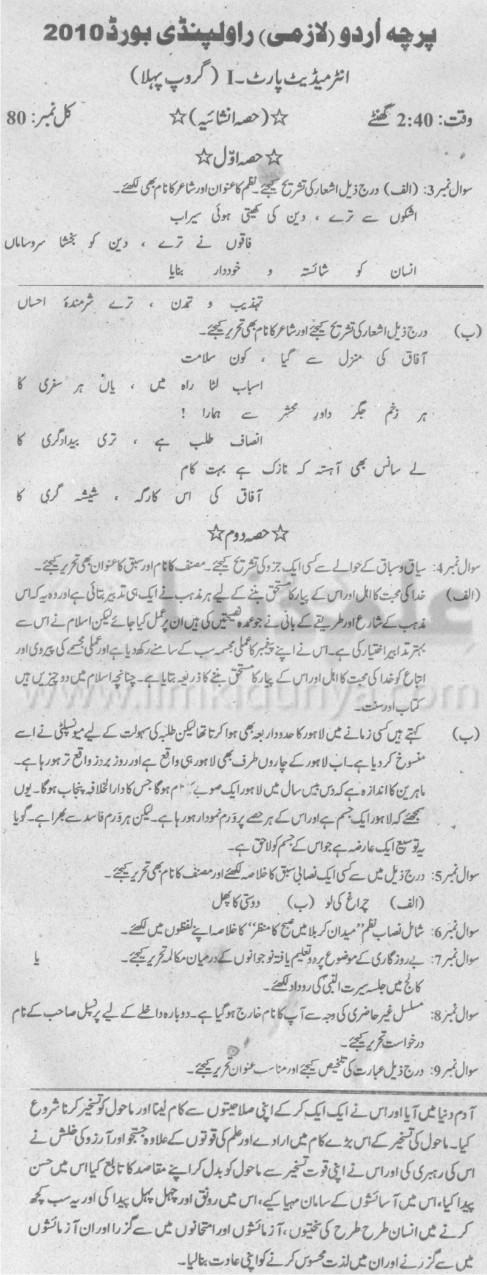 پرچہ اُردو (لازمی) راولپنڈی بورڈ 2010
انٹرمیڈیٹ پارٹ۔I (گروپ پہلا)
وقت: 2:40 گھنٹے ☆(حصہ انشائیہ)☆ کل نمبر: 80
☆حصہ اوّل☆
سوال نمبر3: (الف) درج ذیل اشعار کی تشریح کیجئے۔ نظم کا عنوان اور شاعر کا نام بھی لکھئے۔
اشکوں سے ترے ، دین کی کھیتی ہوئی سیراب
فاقوں نے ترے ، دین کو بخشا سروساماں
انسان کو شائستہ و خوددار بنایا
تہذیب و تمدن ، ترے شرمندۂ احساں
(ب) درج ذیل اشعار کی تشریح کیجئے اور شاعر کا نام بھی تحریر کیجئے۔
آفاق کی منزل سے گیا ، کون سلامت
اسباب لٹا راہ میں ، یاں ہر سفری کا
ہر زخم جگر داورِ محشر سے ہمارا !
انصاف طلب ہے ، تری بیدادگری کا
لے سانس بھی آہستہ کہ نازک ہے بہت کام
آفاق کی اس کارگہ ، شیشہ گری کا
☆حصہ دوم☆
سوال نمبر4: سیاق و سباق کے حوالے سے کسی ایک جزو کی تشریح کیجئے۔ مصنف کا نام اور سبق کا عنوان بھی تحریر کیجئے۔
(الف) خدا کی محبت کا اہل اور اس کے پیار کا مستحق بننے کے لیے ہر مذہب نے ایک ہی تدبیر بتائی ہے اور وہ یہ کہ اس
مذہب کے شارع اور طریقے کے بانی نے جو عمدہ نصیحتیں کی ہیں ان پر عمل کیا جائے لیکن اسلام نے اس سے
بہتر تدابیر اختیار کی ہے۔ اس نے اپنے پیغمبر کا عملی مجسمہ سب کے سامنے رکھ دیا ہے اور عملی مجسمے کی پیروی اور
اتباع کو خدا کی محبت کا اہل اور اس کے پیار کا مستحق بننے کا ذریعہ بتایا ہے۔ چنانچہ اسلام میں دو چیزیں ہیں
کتاب اور سنت۔
(ب) کہتے ہیں کسی زمانے میں لاہور کا حدود اربعہ بھی ہوا کرتا تھا لیکن طلبہ کی سہولت کے لیے میونسپلٹی نے اسے
منسوخ کر دیا ہے۔ اب لاہور کے چاروں طرف بھی لاہور ہی واقع ہے اور روز بروز واقع تر ہو رہا ہے۔
ماہرین کا اندازہ ہے کہ دس بیس سال میں لاہور ایک صوبے کا نام ہوگا جس کا دارالخلافہ پنجاب ہوگا۔ یوں
سمجھئے کہ لاہور ایک جسم ہے اور اس کے ہر حصے پر ورم نمودار ہو رہا ہے۔ لیکن ہر ورم فاسد سے بھرا ہے۔ گویا
یہ توسیع ایک عارضہ ہے جو اس کے جسم کو لاحق ہے۔
سوال نمبر5: درج ذیل میں سے کسی ایک نصابی سبق کا خلاصہ لکھئے اور مصنف کا نام بھی تحریر کیجئے۔
(الف) چراغ کی لو (ب) دوستی کا پھل
سوال نمبر6: شامل نصاب نظم ”میدان کربلا میں صبح کا منظر“ کا خلاصہ اپنے لفظوں میں لکھئے۔
سوال نمبر7: بے روزگاری کے موضوع پر دو تعلیم یافتہ نوجوانوں کے درمیان مکالمہ تحریر کیجئے۔ یا
کالج میں جلسہ سیرت النبیؐ کی روداد لکھئے۔
سوال نمبر8: مسلسل غیر حاضری کی وجہ سے آپ کا نام خارج ہو گیا ہے۔ دوبارہ داخلے کے لیے پرنسپل صاحب کے نام
درخواست تحریر کیجئے۔
سوال نمبر9: درج ذیل عبارت کی تلخیص کیجئے اور مناسب عنوان تحریر کیجئے۔
آدم دنیا میں آیا اور اس نے ایک ایک کر کے اپنی صلاحیتوں سے کام لینا اور ماحول کو تسخیر کرنا شروع
کیا۔ ماحول کی تسخیر کے اس بڑے کام میں ارادے اور علم کی قوتوں کے علاوہ جستجو اور آرزو کی خلش نے
اس کی رہبری کی اور اس نے اپنی قوت تسخیر سے ماحول کو بدل کر اپنے مقاصد کا تابع کیا اس میں حسن
پیدا کیا، اس میں آسائشوں کے سامان مہیا کیے، اس میں رونق اور چہل پہل پیدا کی اور یہ سب کچھ
کرنے میں انسان طرح طرح کی سختیوں، آزمائشوں اور امتحانوں میں سے گزرا اور ان آزمائشوں
میں سے گزرنے اور ان میں لذت محسوس کرنے کو اپنی عادت بنا لیا۔
علم کی دنیا
www.ilmkidunya.com